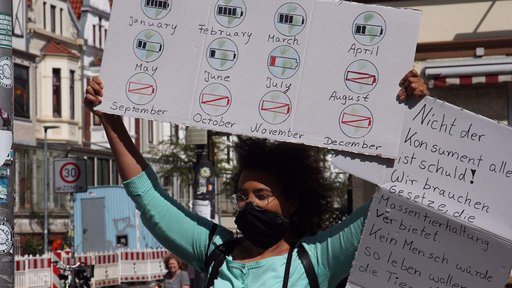 January
February
March
April
May
June
July
August
September
October
November
December
30
ZONE
Nicht der
Konsument alle
ist schuld!
Wir brauchen
Gesetze, die
Massentierhaltung
verbietet.
Kein Mensch würde
so leben wollen
die Tie